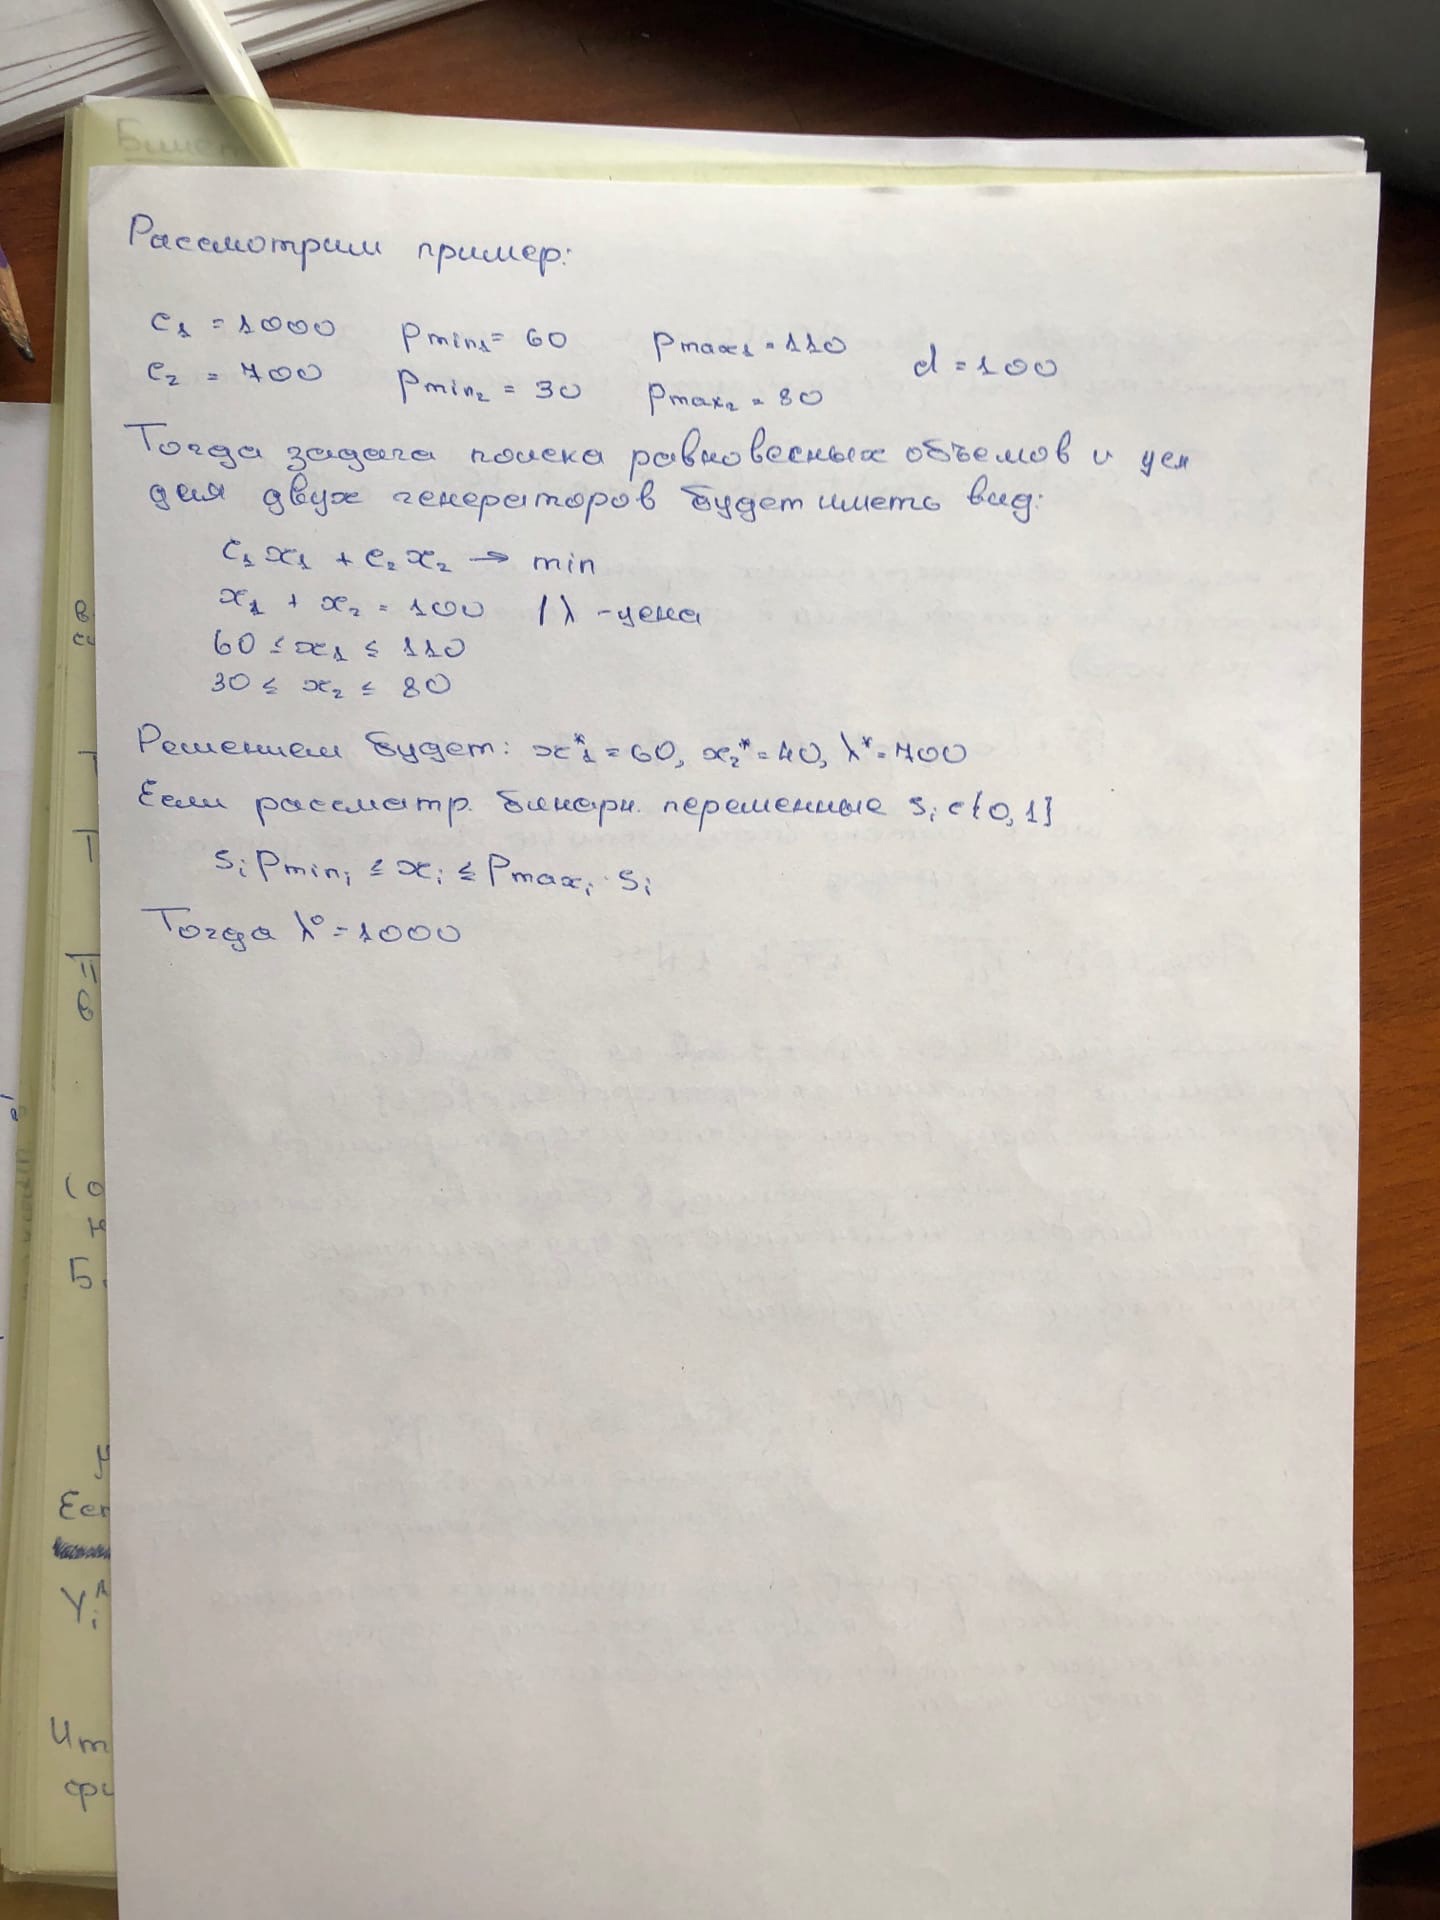 Рассмотрим пример:
c₁ = 1000 Pmin₁ = 60 Pmax₁ = 110 d = 100
c₂ = 700 Pmin₂ = 30 Pmax₂ = 80
Тогда задача поиска равновесных объемов и цен
для двух генераторов будет иметь вид:
c₁x₁ + c₂x₂ → min
x₁ + x₂ = 100 / λ - цена
60 ≤ x₁ ≤ 110
30 ≤ x₂ ≤ 80
Решением будет: x₁* = 60, x₂* = 40, λ* = 700
Если рассматр. бинарн. переменные sᵢ ∈ {0,1}
sᵢ Pminᵢ ≤ xᵢ ≤ Pmaxᵢ · sᵢ
Тогда λ⁰ = 1000